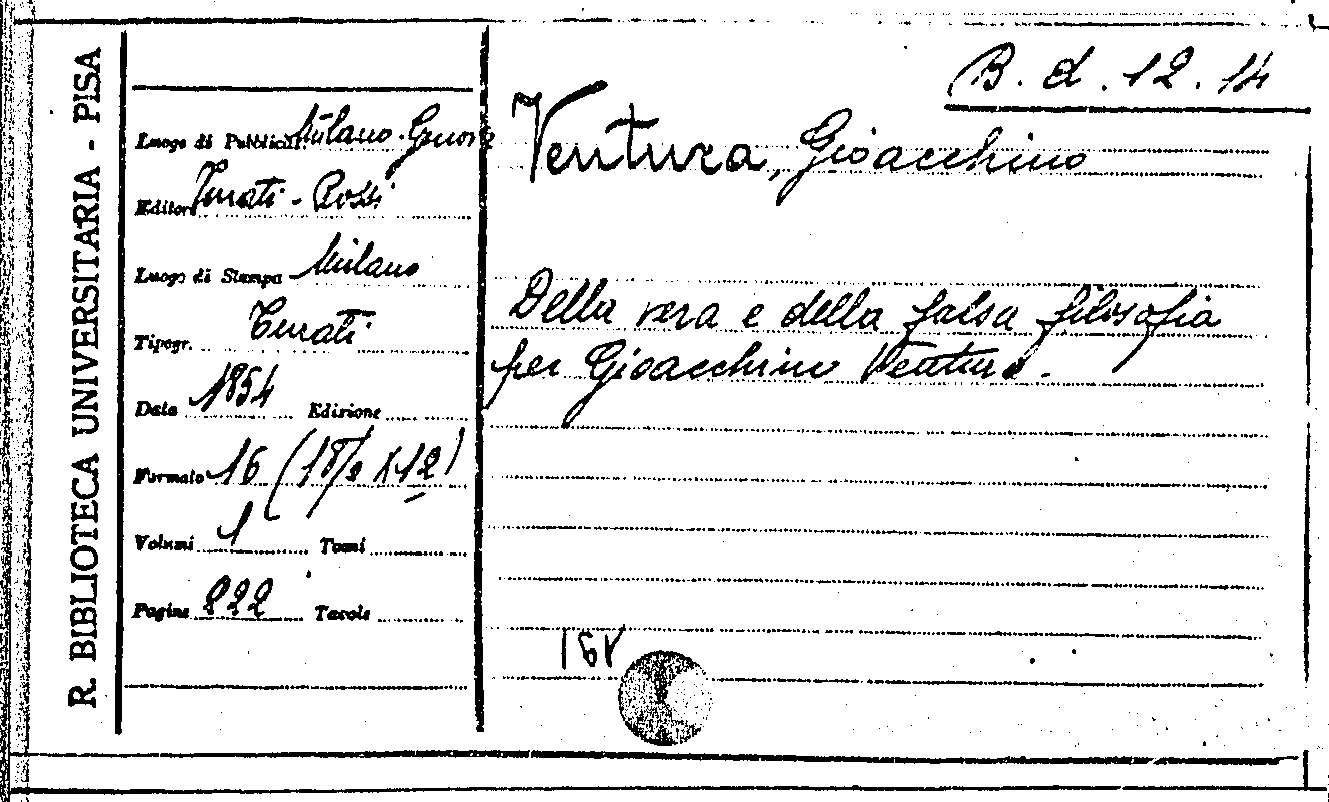 R. BIBLIOTECA UNIVERSITARIA - PISA
B. d. 12. 14
Luogo di Pubblicaz. Milano-Genova
Editore Turati - Rossi
Luogo di Stampa Milano
Tipogr. Turati
Data 1854 Edizione
Formato 16 (18/2 X 12)
Volumi 1 Tomi
Pagine 222 Tavole
Ventura, Gioacchino
Della vera e della falsa filosofia
per Gioacchino Ventura.